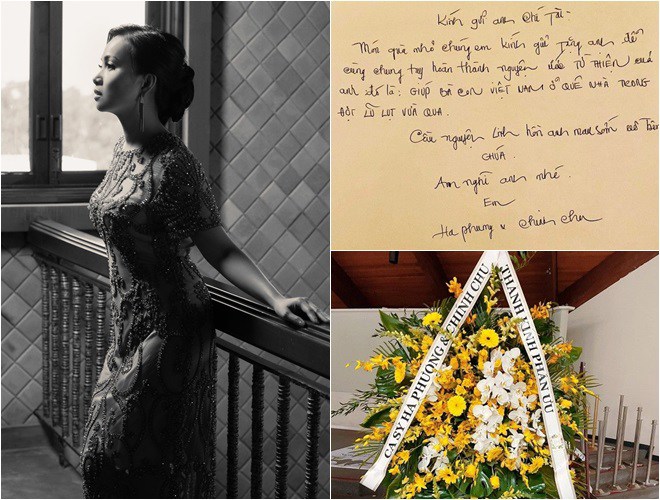 Kính gửi anh Chí Tài:
Món quà nhỏ chúng em kính gửi tặng anh để
cùng chung tay hoàn thành nguyện ước TỪ THIỆN của
anh đó là: GIÚP BÀ CON VIỆT NAM Ở QUÊ NHÀ TRONG
ĐỢT LŨ LỤT VỪA QUA.
Cầu nguyện linh hồn anh mau sớm về bên
CHÚA.
An nghỉ anh nhé.
Em
Ha phuong & chinh chu
CA SỸ HÀ PHƯƠNG & CHÍNH CHU
THÀNH KÍNH PHÂN ƯU